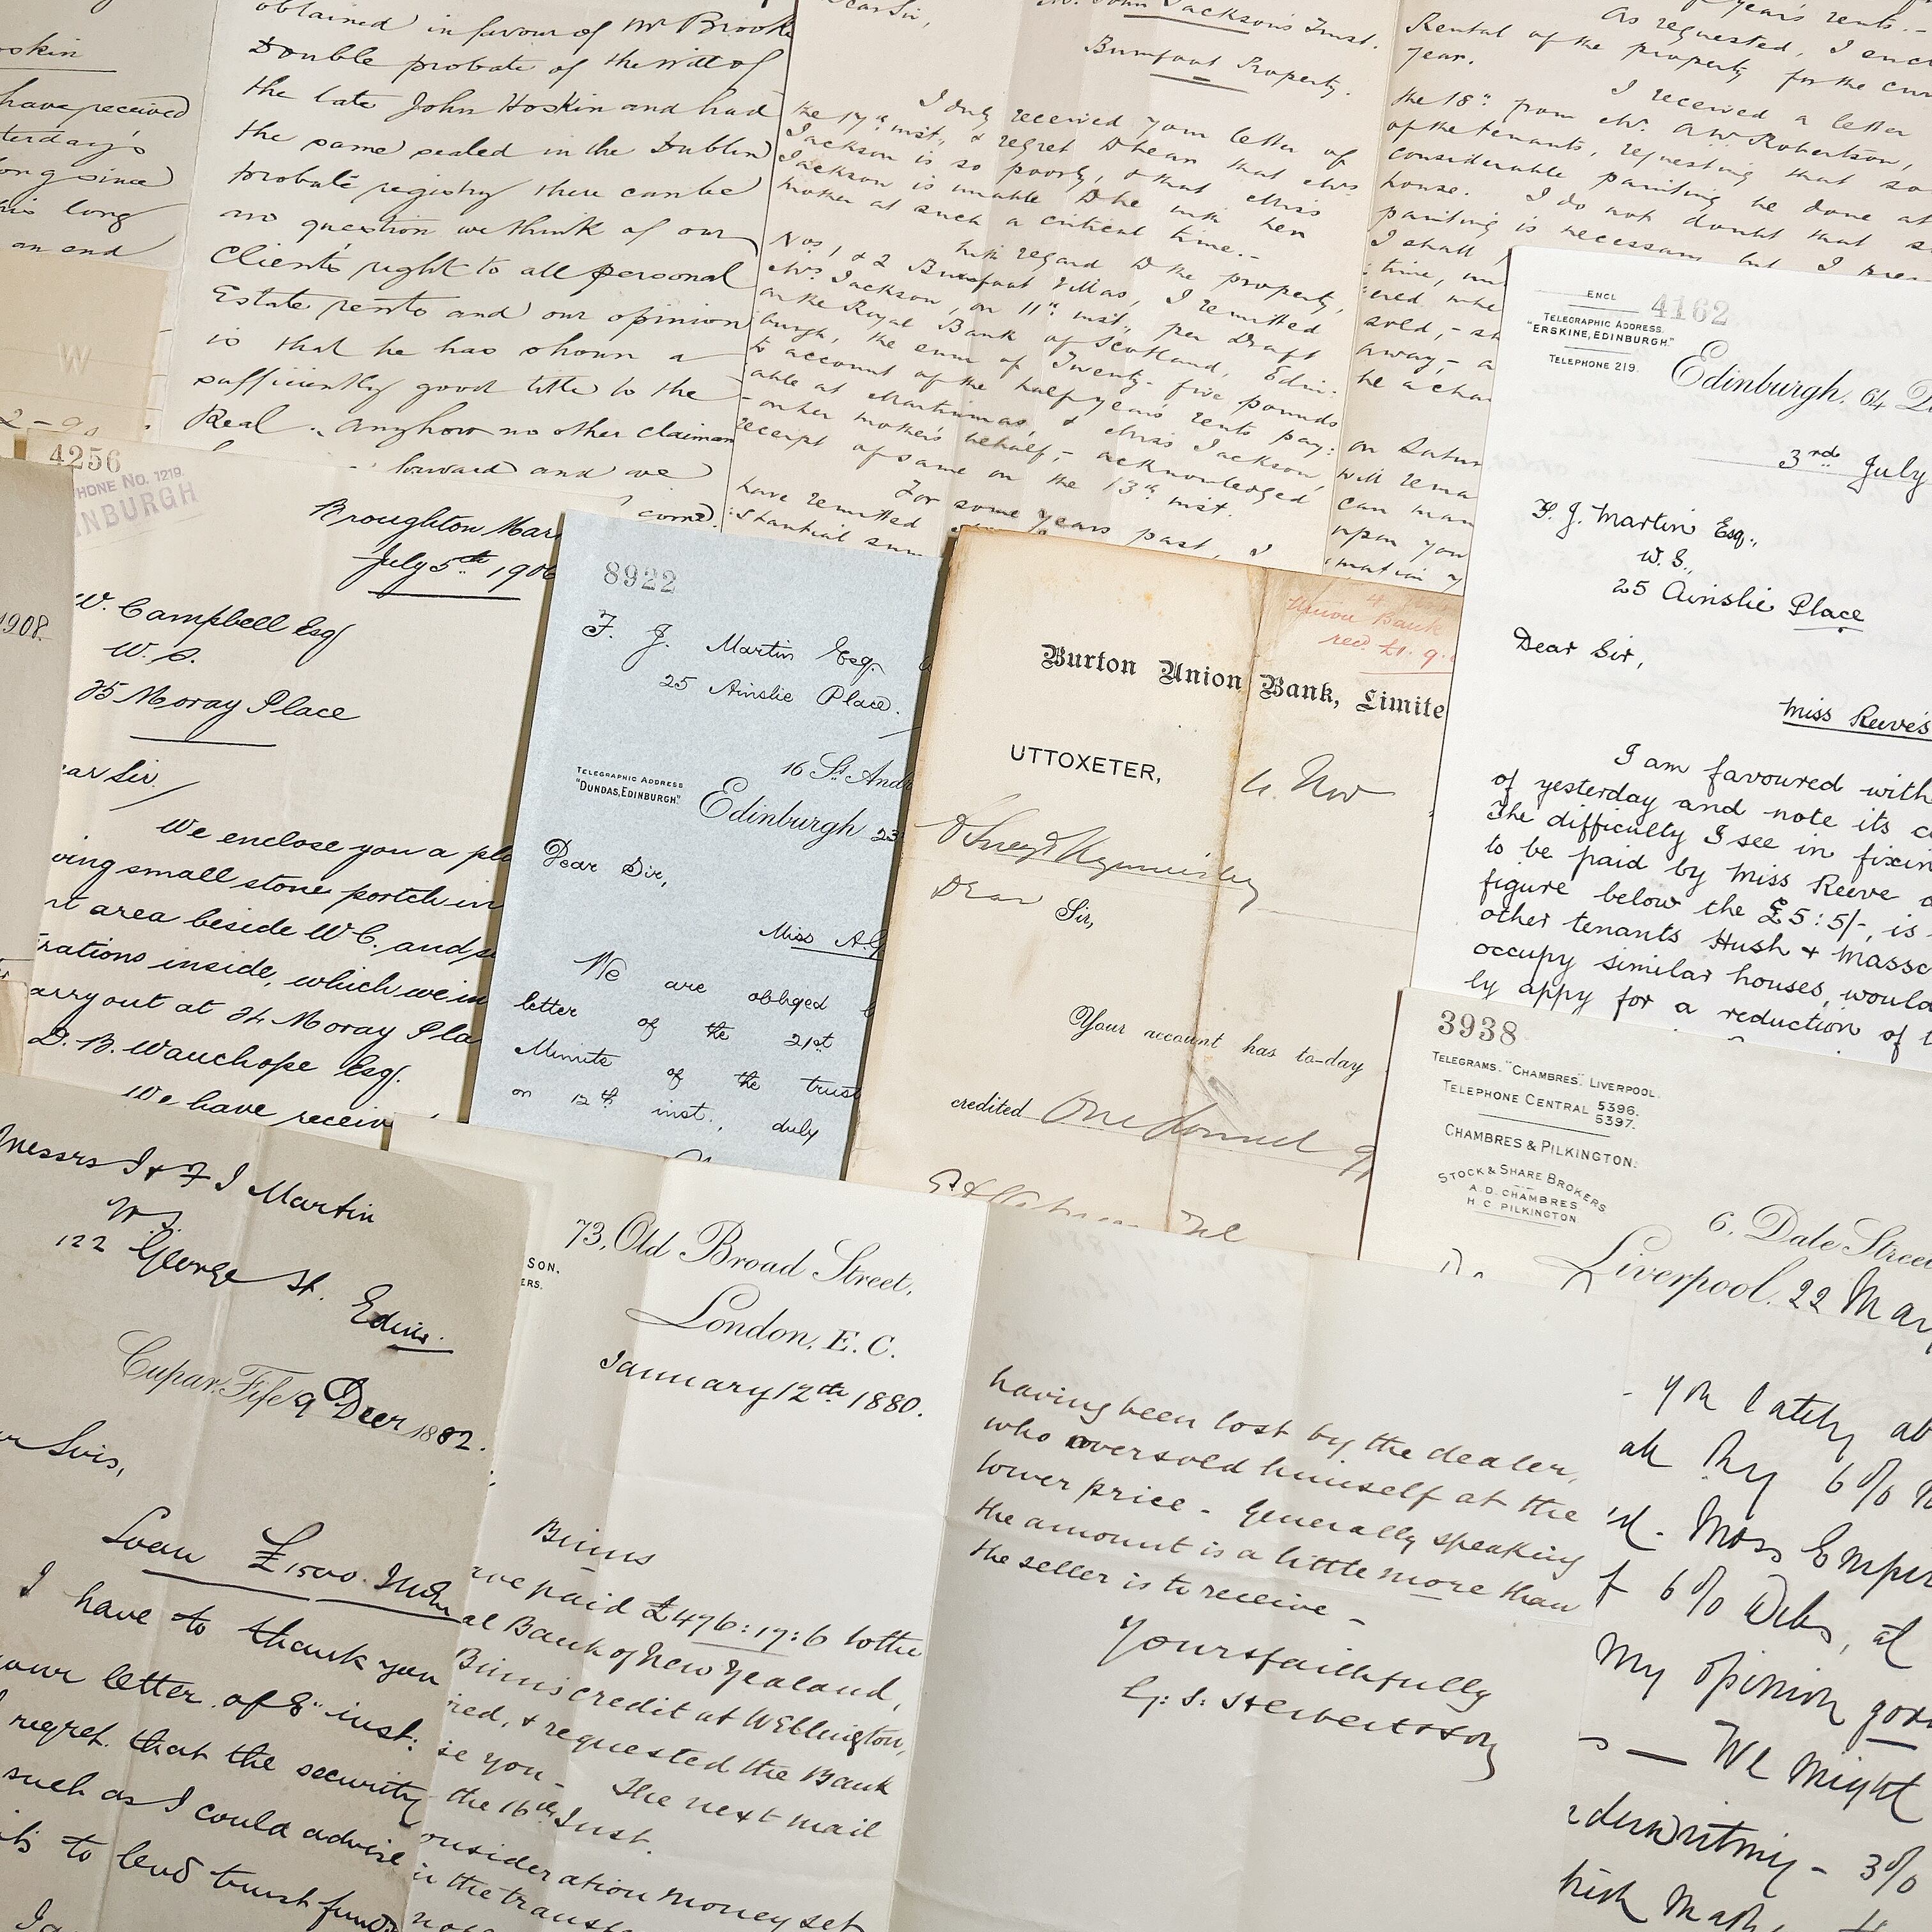 oskin
have received
terday's
ong since
his long
an end
W
obtained in favour of Mr Brooke
Double probate of the will of
the late John Hoskin and had
the same sealed in the Dublin
probate registry there can be
no question we think of our
Client's right to all personal
Estate rents and our opinion
is that he has shown a
sufficiently good title to the
Real. Anyhow no other claiman
forward and we
come).
Dear Sir,
Mr. John Jackson's Trust.
Property.
I duly received your letter of
the 17th inst., & regret to hear that Mrs
Jackson is so poorly, & that Miss
Jackson is unable to be with her
mother at such a critical time.-
With regard to the property,
Nos 1 & 2 Villas, I remitted
Mrs. Jackson, on 11th inst., per Draft
on the Royal Bank of Scotland, Edin-
burgh, the sum of Twenty-five pounds
to account of the half year's rents pay:
able at Martinmas, & Miss Jackson,
-on her mother's behalf,- acknowledged
receipt of same on the 13th inst.
For some years past, I
have remitted
:stantial sum
year's rents.-
As requested, I enc
Rental of the property for the cur
year.
I received a letter
the 18th from Mr. A.W. Robertson,
of the tenants, requesting that so
considerable painting be done at
house. I do not doubt that s
painting is necessary but I
I shall
time,
sold, - sh
away, - a
he a cha
on Satur
will rema
can man
upon you
:mation
ENCL 4162
TELEGRAPHIC ADDRESS.
"ERSKINE, EDINBURGH."
TELEPHONE 219.
Edinburgh, 64
3rd July
F. J. Martin Esq.,
W.S.,
25 Ainslie Place
Dear Sir,
Miss Reeve's
I am favoured with
of yesterday and note its c
The difficulty I see in fixin
to be paid by Miss Reeve
figure below the £5:5/-, is
other tenants Hush & Masso
occupy similar houses, would
ly appy for a reduction of
4256
HONE No. 1219.
INBURGH
Broughton Mar
July 5th 190
W. Campbell Esq
W.S.
25 Moray Place
ear Sir
We enclose you a pl
ving small stone porch in
nt area beside W.C. and
rations inside, which we in
arry out at 24 Moray Pla
D. B. Wauchope Esq.
We have receiv
1908.
8922
F. J. Martin Esq.
25 Ainslie Place.
16 St. And
TELEGRAPHIC ADDRESS
"DUNDAS, EDINBURGH."
Edinburgh 23
Dear Sir,
Miss A.
We are obliged
letter of the 21st
Minute of the trust
on 12th inst., duly
Union Bank
recd. £1. 9.
Burton Union Bank, Limite
UTTOXETER,
4. Nov
Dear Sir,
Your account has to-day
credited One pound 9/
3938
TELEGRAMS. "CHAMBRES". LIVERPOOL.
TELEPHONE CENTRAL 5396.
5397.
CHAMBRES & PILKINGTON.
STOCK & SHARE BROKERS
A. D. CHAMBRES
H. C. PILKINGTON
6, Dale Stree
Liverpool, 22 Mar
Messrs J & F J Martin
W.S.
122 George St. Edin.
Cupar, Fife 9 Decr 1882.
r Sirs,
Loan £1500.
I have to thank you
your letter of 8th inst:
regret that the security
such as I could advise
to lend trust funds
SON,
ERS.
73, Old Broad Street,
London, E. C.
January 12th 1880.
Binns
ave paid £476:17:6 to the
al Bank of New Zealand,
Binns credit at Wellington,
red, & requested the Bank
se you - The next mail
the 16th Inst.
onsideration money set
in the transf
having been lost by the dealer,
who oversold himself at the
lower price - Generally speaking
the amount is a little more than
the seller is to receive -
Yours faithfully
G. S. Herbertson
- you lately ab
6%
d. Moss Empir
f 6% Debs, at
My opinion good
s - We might
derwriting - 3%